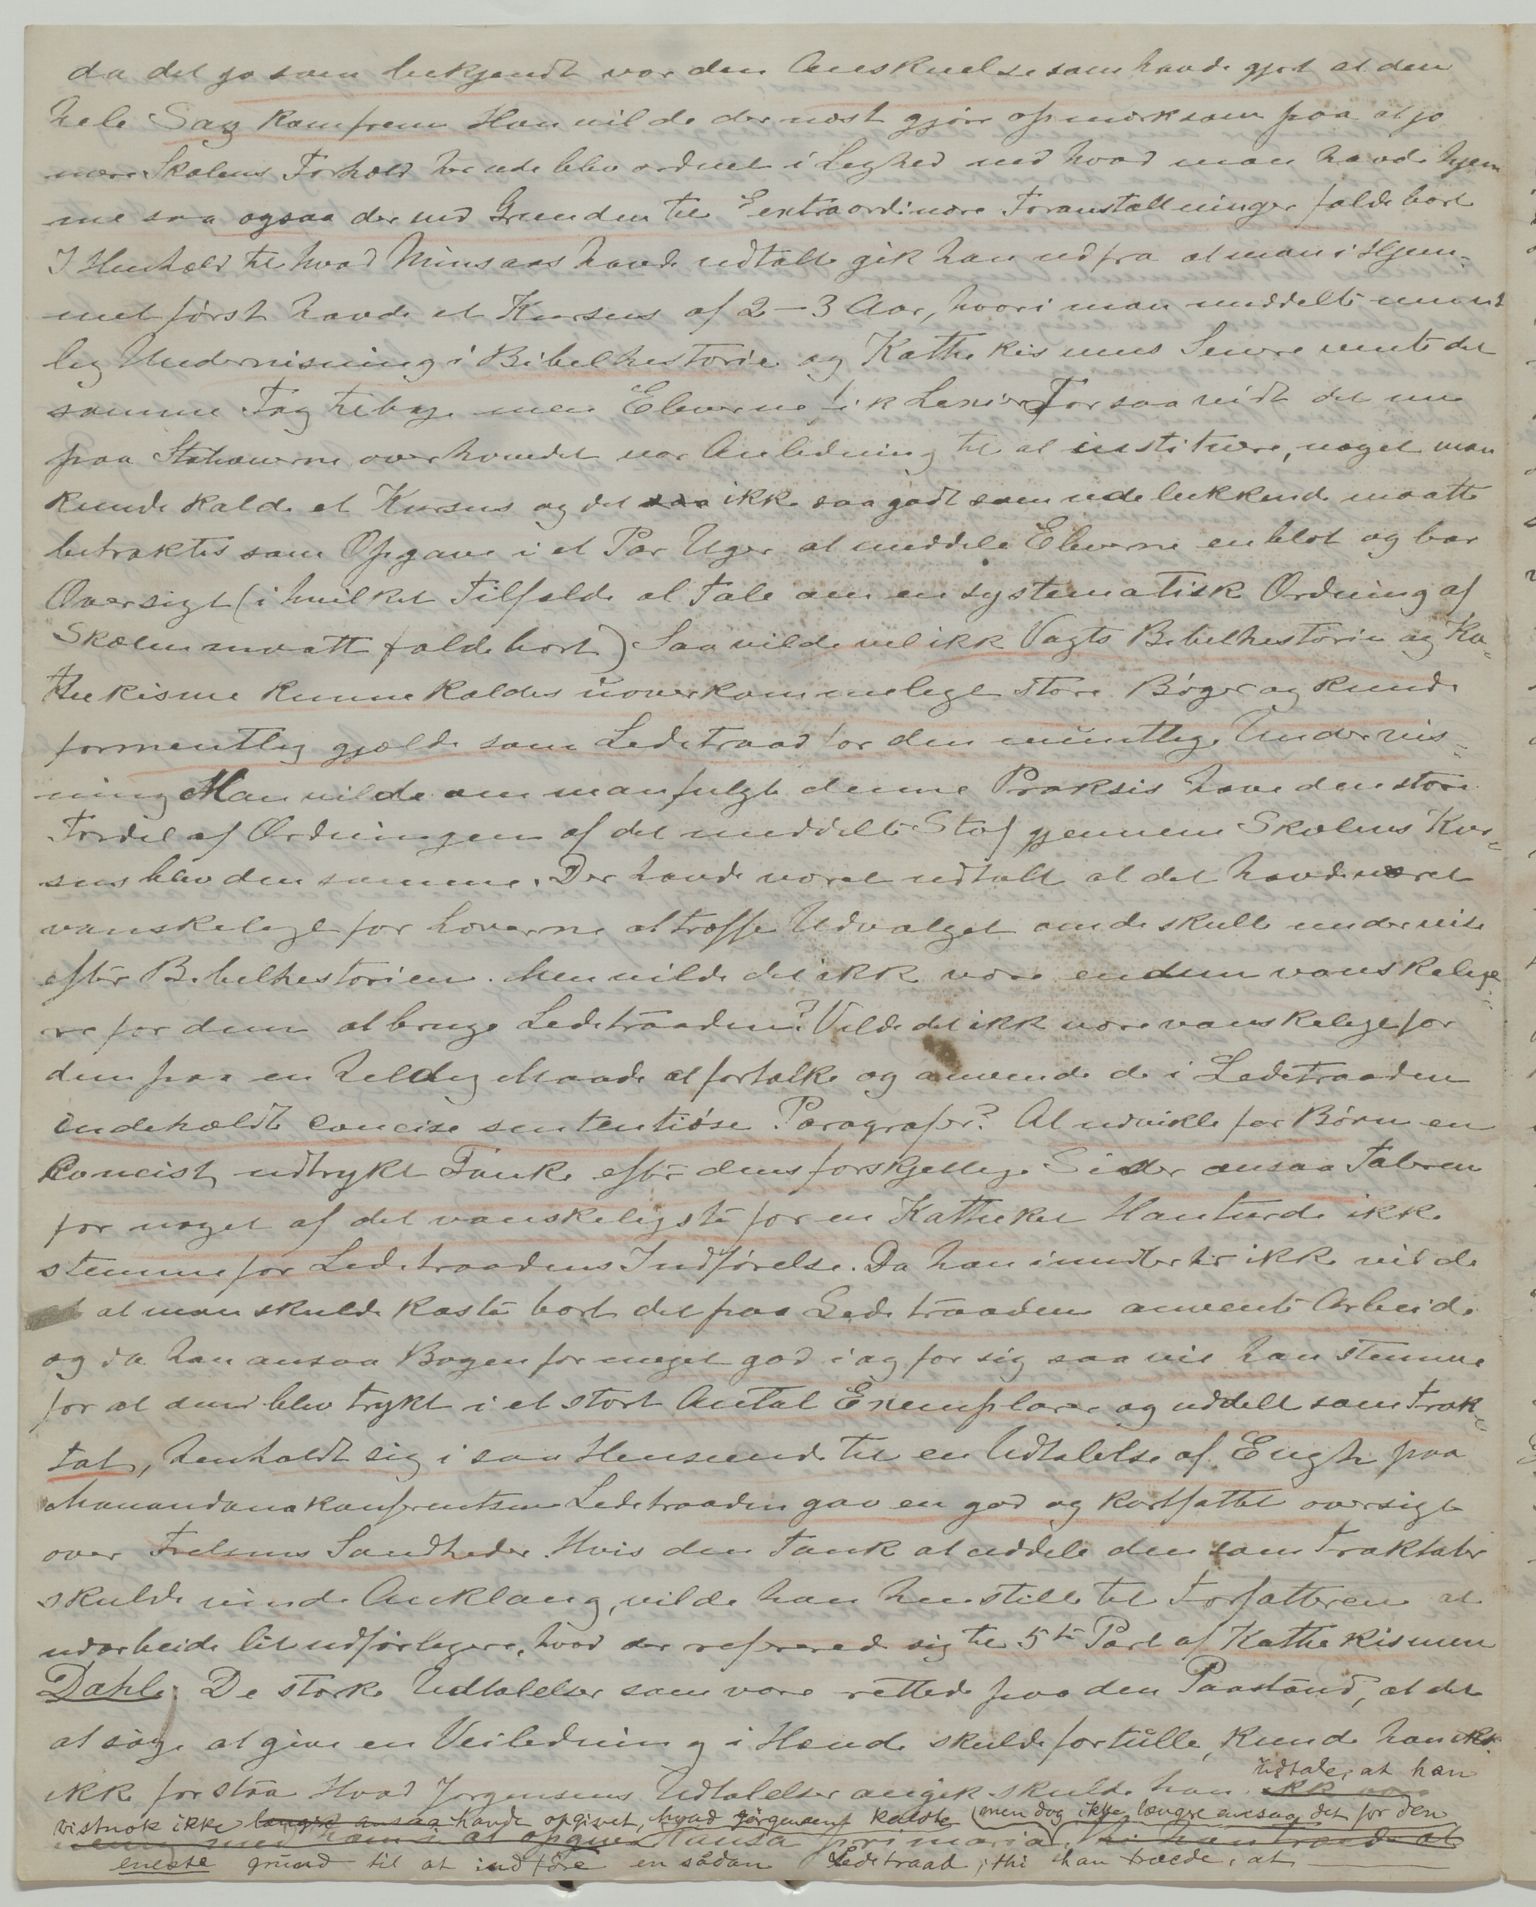 da det jo som bekjendt var den Anskuelse som havde gjort at den
hele Sag kom frem Han vilde dernæst gjøre opmerksom paa at jo
mere Skolens Forhold herude blev ordnet i Lighed med hvad man havde hjem
me saa ogsaa dermed Grunden til extraordinære Foranstaltninger faldt bort
I Henhold til hvad Minsaas havde udtalt gik han ud fra at man i Hjem-
met først havde et Kursus af 2–3 Aar, hvori man meddelte mundt
lig Undervisning i Bibelhistorie og Kathekismus Senere vente det
samme Tag tilbage men Eleverne fik Lexier. Forsaavidt det nu
paa Stationerne overhovedet var Anledning til at instituere, noget man
kunde kalde et Kursus og det ikke saagodtsom udelukkende maatte
betraktes som Opgave i et Par Uger at meddele Eleverne en blot og bar
Oversigt (i hvilket Tilfælde al Tale om en systematisk Ordning af
Skolen maatte falde bort) Saa vilde vel ikke Vogts Bibelhistorie og Ka-
thekisme kunne kaldes uoverkommeligt store Bøger og kunde
formentlig gjælde som Ledetraad for den mundtlige Undervis-
ning Man vilde om man fulgte denne Praksis have den store
Fordel af Ordningen af det meddelte Stof gjennem Skolens Kur-
sus blev den samme. Der havde været udtalt at det havde været
vanskeligt for Lærerne at træffe Udvalget om de skulle undervise
efter Bibelhistorien. Men vilde det ikke være endnu vanskelige-
re for dem at bruge Ledetraaden? Vilde det ikke være vanskeligt for
dem paa en heldig Maade at fortolke og anvende de i Ledetraaden
indeholdte concise sententiøse Paragrafer? At udvikle for Børn en
koncist udtrykt Tanke efter dens forskjellige Sider ansaa Taleren
for noget af det vanskeligste for en Katheket Han turde ikke
stemme for Ledetraadens Indførelse. Da han imidlertid ikke vilde
at man skulde kaste bort det paa Ledetraaden anvente Arbeide
og da han ansaa Bogen for meget god i og for sig saa vil han stemme
for at den blev trykt i et stort Antal Exemplarer og uddelt som Trak-
tat, henholdt sig i saa Henseende til en Udtalelse af Engh paa
konferentsen Ledetraaden gav en god og kortfattet oversigt
over Frelsens Sandheder. Hvis den Tanke at uddele den som Traktater
skulde vinde Anklang, vilde han henstille til Forfatteren at
udarbeide lit udførligere, hvad der refererede sig til 5te Part af Kathekismen
Dahle: De stærke Udtalelser som vare rettede paa den Paastand, at det
at søge at give en Veiledning i Hænde skulde fortulle, kunde han
ikke forstaa Hvad Jørgensens Udtalelser angik skulde han udtale, at han
vistnok ikke havde opgivet, hvad Jørgensen kaldte (men dog ikke længre ansaa det for den
causa primaria
eneste grund til at indføre en sådan Ledetraad; thi han troede, at